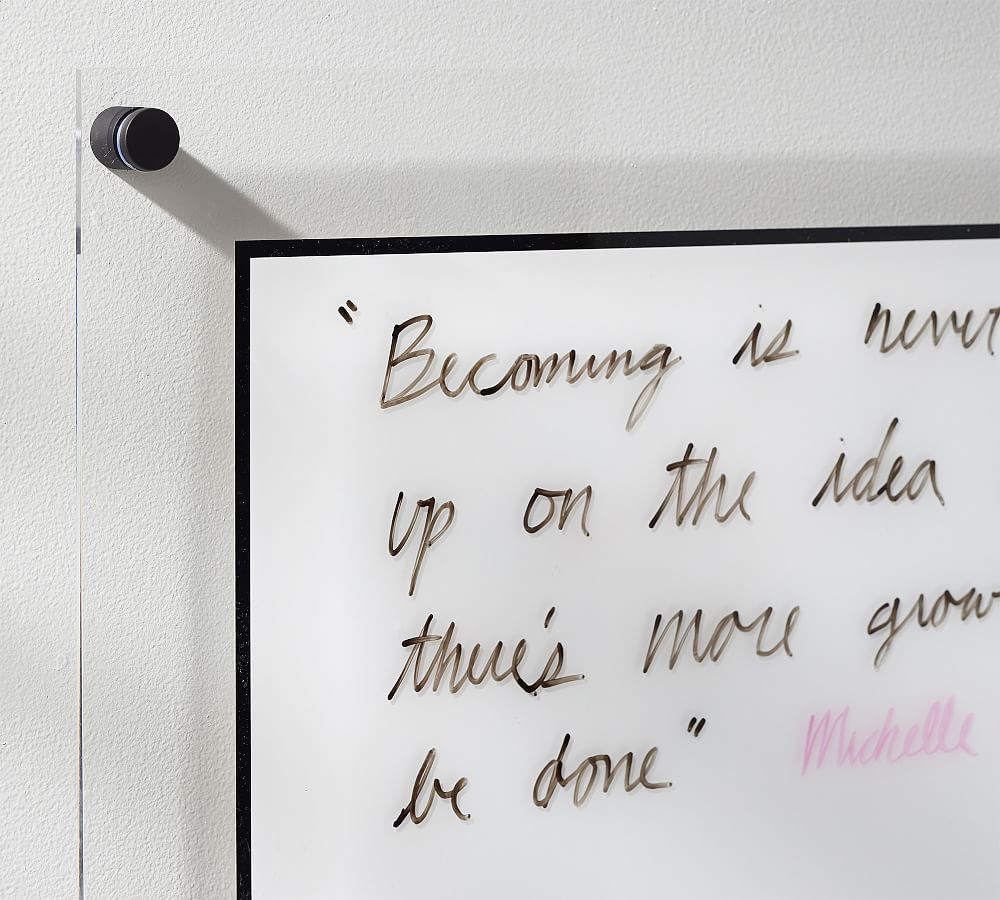 "Becoming is never
up on the idea
there's more grow
be done" Michelle